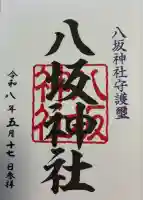 八坂神社守護璽
八坂神社
令和八年五月十七日参拝